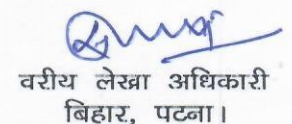 वरीय लेखा अधिकारी
बिहार, पटना।